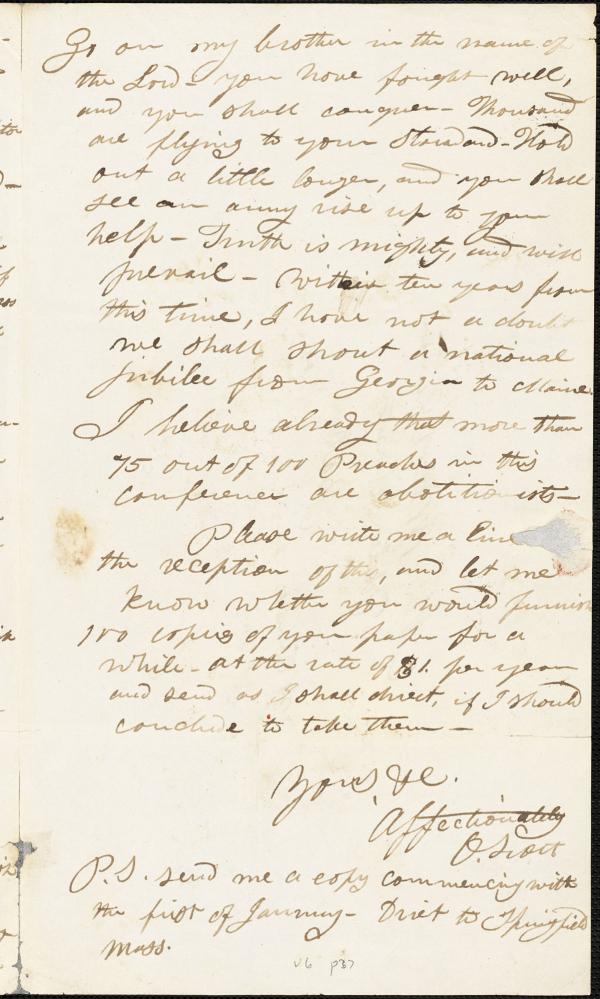 Go on my brother in the name of
the Lord - you have fought well,
and you shall conquer - Thousand
are flying to your Standard - Hold
out a little longer, and you shall
see an army rise up to your
help - Truth is mighty, and will
prevail - Within ten years from
this time, I have not a doubt
we shall shout a national
jubilee from Georgia to Maine.
I believe already that more than
75 out of 100 Preachers in this
conference are abolitionists -
Please write me a line
the reception of this, and let me
know whether you would furnish
100 copies of your paper for a
while - at the rate of $1. per year
and send as I shall direct, if I should
conclude to take them -
Yours &c.
Affectionately
O. Scott
P.S. send me a copy commencing with
the first of January - Driet to Springfield
Mass.
v6 p37